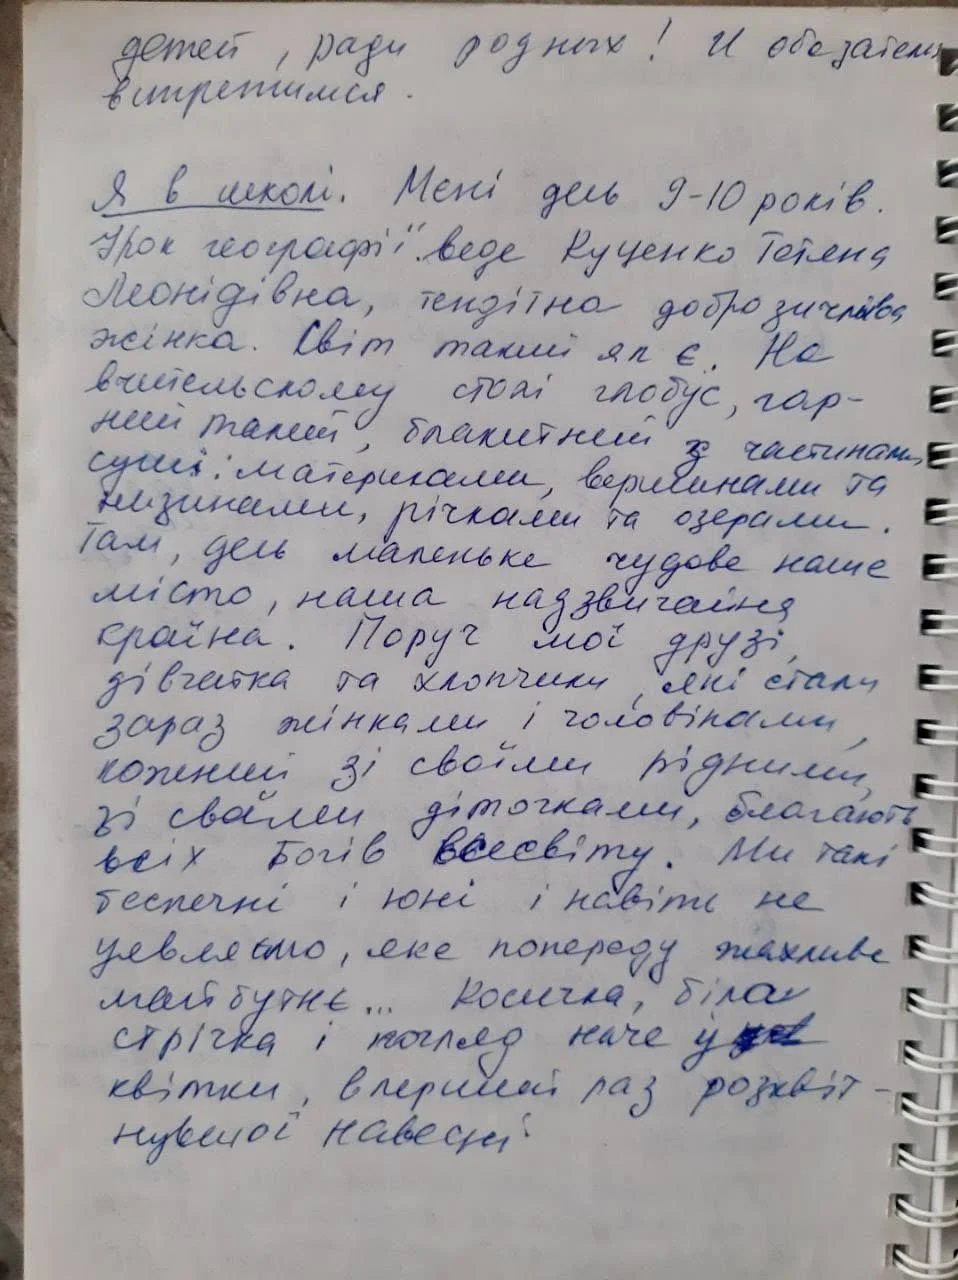 детей, ради родных! И обязательно
встретимся.
Я в школі. Мені десь 9-10 років.
Урок географії веде Куценко Тетяна
Леонідівна, тендітна доброзичлива
жінка. Світ такий як є. На
вчительському столі глобус, гар-
ний такий, блакитний з частинами
суші: материками, вершинами та
низинами, річками та озерами.
Там, десь маленьке чудове наше
місто, наша надзвичайна
країна. Поруч мої друзі,
дівчатка та хлопчики, які стали
зараз жінками і чоловіками,
кожний зі своїми рідними,
зі своїми діточками, благають
всіх Богів всесвіту. Ми такі
беспечні і юні і навіть не
уявляємо, яке попереду жахливе
майбутнє... Косичка, біла
стрічка і погляд наче у
квітки, вперший раз розквіт-
нувшої навесні.